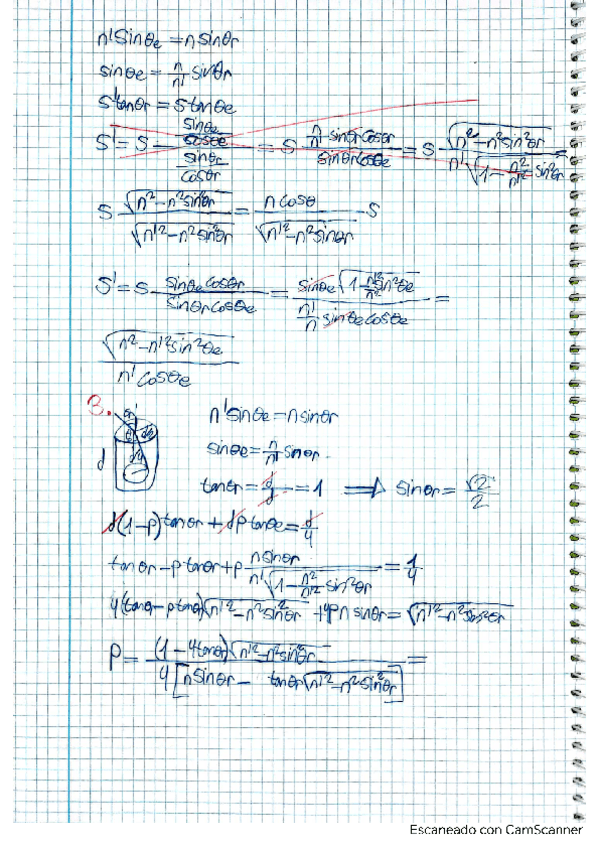 n'sinθe = n sinθr
sinθe = n/n' sinθr
s'tanθr = s tanθe
s' = s (sinθe/cosθe)/(sinθr/cosθr) = s (n/n' sinθr cosθr)/(sinθr cosθe) = s √(n²-n²sin²θr)/(n'√(1-n²/n'² sin²θr)) =
s √(n²-n²sin²θr)/√(n'²-n²sin²θr) = n cosθ/√(n'²-n²sinθr) s
s' = s (sinθe cosθr)/(sinθr cosθe) = (sinθe √(1-n'²/n² sin²θe))/(n'/n sinθe cosθe) =
√(n²-n'²sin²θe)/(n'cosθe)
3.
n'sinθe = n sinθr
d
sinθe = n/n' sinθr.
tanθr = d/d = 1 ⟹ sinθr = √2/2
d(1-p)tanθr + dp tanθe = d/4
tanθr - p tanθr + p n sinθr/(n'√(1-n²/n'² sin²θr)) = 1/4
4(tanθr - p tanθr)√(n'²-n²sin²θr) + 4pn sinθr = √(n'²-n²sin²θr)
P = (1-4tanθr)√(n'²-n²sin²θr)/(4[n sinθr - tanθr√(n'²-n²sin²θr)]) =
Escaneado con CamScanner